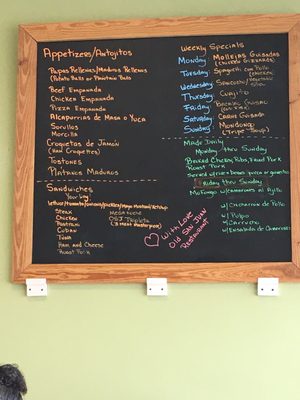 Appetizers/Antojitos
Papas Rellenas/Maduros Rellenos
(Potato Balls or Plantain Balls)
Beef Empanada
Chicken Empanada
Pizza Empanada
Alcapurrias de Masa o Yuca
Sorullos
Morcilla
Croquetas de Jamón
(Ham Croquettes)
Tostones
Platanos Maduros
Sandwiches
Your Way:
lettuce/tomato/onions/pickles/mayo/mustard/ketchup
Steak
Chicken
Pastrami
Cuban
Tuna
Ham and Cheese
Roast Pork
Medianoche
OSJ Tripleta
(3 meat masterpiece)
With Love
Old San Juan
Restaurant
Weekly Specials
Monday: Mollejas Guisadas
(Chicken Gizzards)
Tuesday: Spaghetti con Pollo
(Chicken)
Wednesday:
Thursday:
Friday:
Saturday: Carne Guisada
Sunday: Mondongo
(Tripe Soup)
Made Daily
Monday thru Sunday
Baked Chicken, Ribs, Fried Pork
Roast Pork
Served w/ rice beans
Friday thru Sunday
Mofongo w/ Camarones al Ajillo
w/ Chicharron de Pollo
w/ Pulpo
w/ Carrucho
w/ Ensalada de Camarones